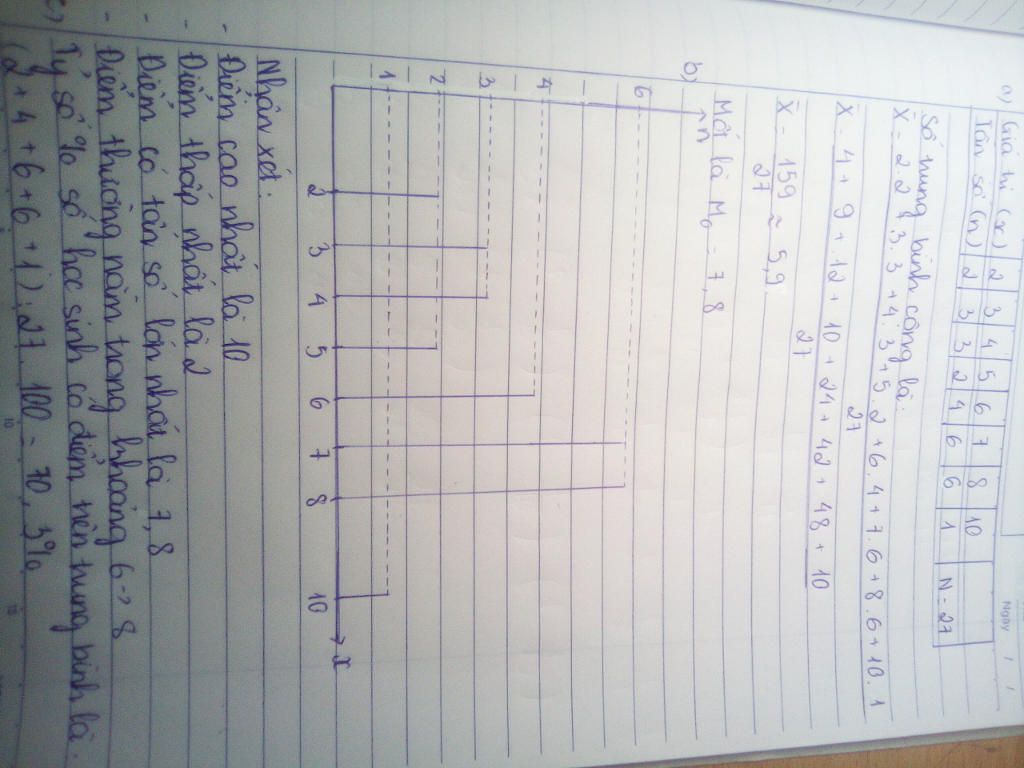 Ngày / /
a) Giá trị (x) 2 3 4 5 6 7 8 10
Tần số (n) 2 3 3 2 4 6 6 1 N = 27
Số trung bình cộng là:
X̄ = 2.2 + 3.3 + 4.3 + 5.2 + 6.4 + 7.6 + 8.6 + 10.1
27
X̄ = 4 + 9 + 12 + 10 + 24 + 42 + 48 + 10
27
X̄ = 159 ≈ 5,9
27
Mốt là M₀ = 7, 8
b)
n
6
4
3
2
1
2 3 4 5 6 7 8 10 x
Nhận xét:
- Điểm cao nhất là 10
- Điểm thấp nhất là 2
- Điểm có tần số lớn nhất là 7, 8
- Điểm thường nằm trong khoảng 6 → 8
c) Tỷ số % số học sinh có điểm trên trung bình là.
(2 + 4 + 6 + 6 + 1) : 27 . 100 = 70, 3%